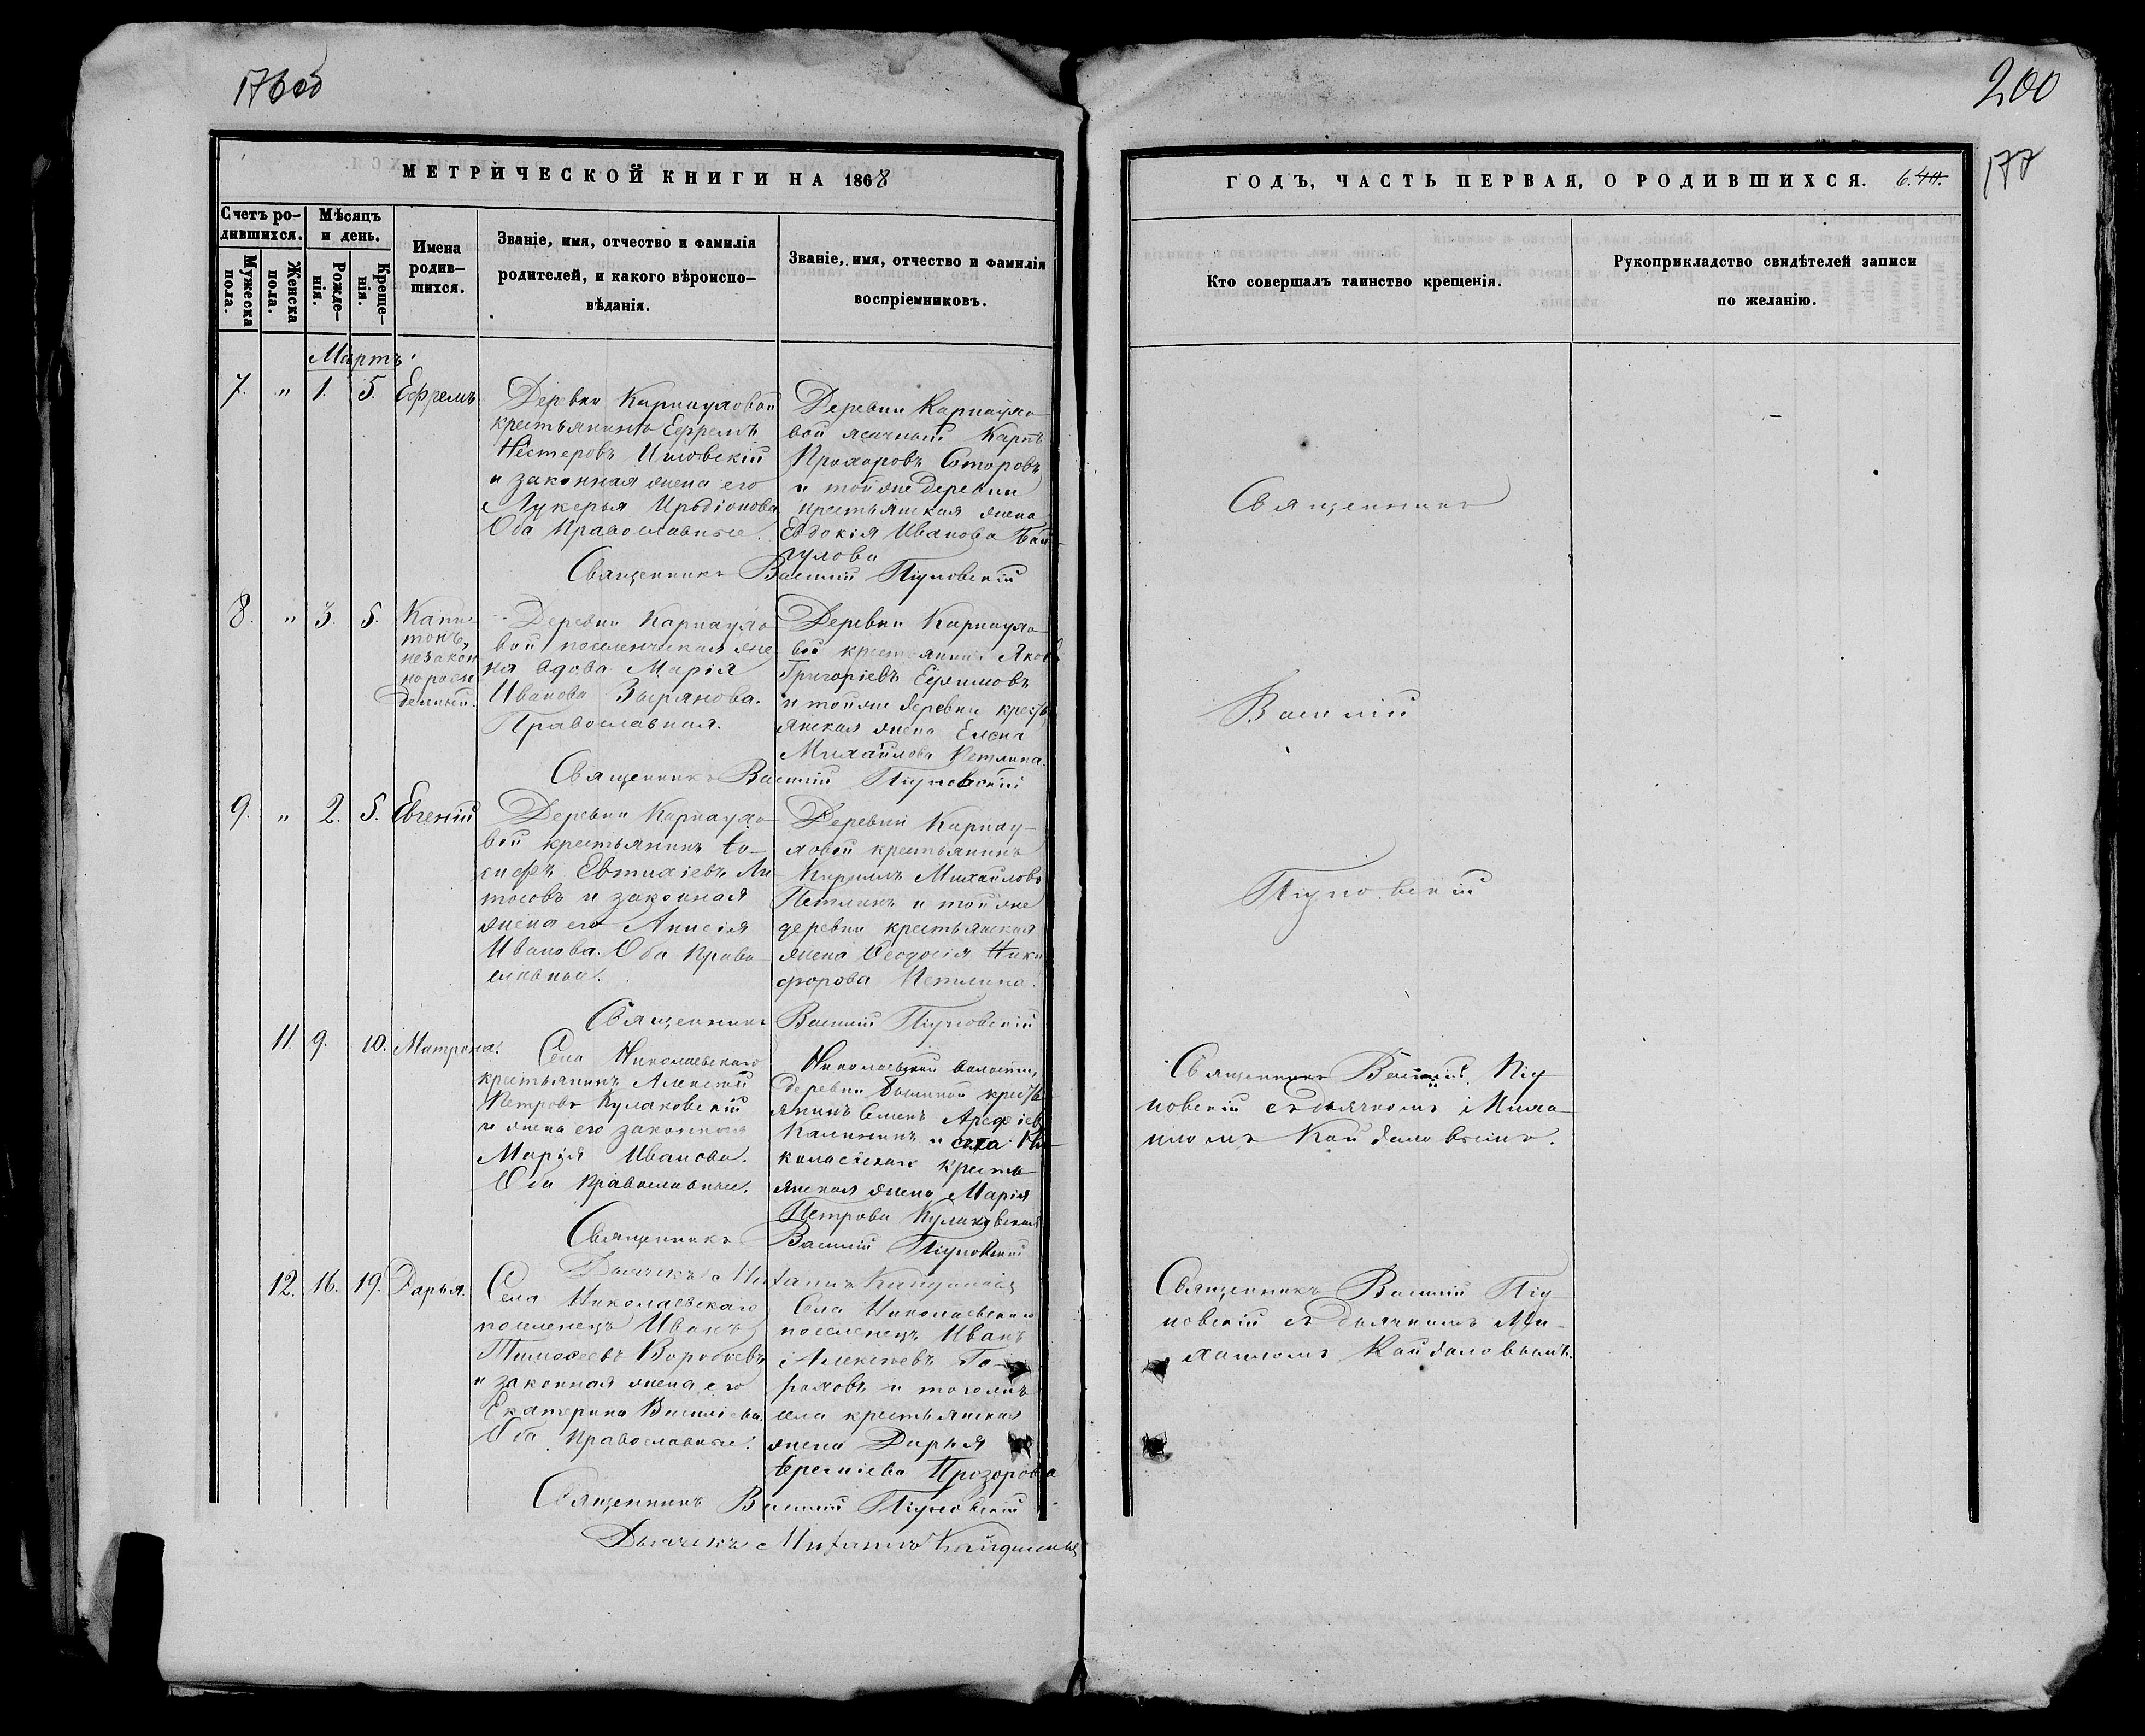 176об
200
177
МЕТРИЧЕСКОЙ КНИГИ НА 1868
ГОДЪ, ЧАСТЬ ПЕРВАЯ, О РОДИВШИХСЯ. 6.
Счетъ ро-
дившихся.
Мужеска
пола.
Женска
пола.
Мѣсяцъ
и день.
Рожде-
нія.
Креще-
нія.
Имена
родив-
шихся.
Званіе, имя, отчество и фамилія
родителей, и какого вѣроиспо-
вѣданія.
Званіе, имя, отчество и фамилія
воспріемниковъ.
Кто совершалъ таинство крещенія.
Рукоприкладство свидѣтелей записи
по желанію.
Мартъ
7. " 1. 5. Ефремъ
Деревни Карнауховой
крестьянинъ Ефремъ
Нестеровъ
и законная жена его
Лукерья
Оба Православные.
Деревни Карнаухо-
вой ясачный Карпъ
Прохоровъ
и той же деревни
крестьянская жена
Евдокія Иванова Бай-
гулова
Священникъ Василий Піуновскій
8. " 3. 5. Капи-
тонъ,
незакон
норож
денный.
Деревни Карнаухо-
вой поселенческая же
на вдова Марія
Иванова Зырянова.
Православная.
Деревни Карнаухо-
вой крестьянинъ Яковъ
Григоріевъ Ефимовъ
и той же деревни кресть
янская жена Елена
Михайлова Петлина.
Священникъ Василій Піуновскій
9. " 2. 5. Евгеній
Деревни Карнаухо-
вой крестьянинъ Іо-
сифъ Евтихіевъ Ан-
тосовъ и законная
жена его Анисія
Иванова. Оба Право-
славные.
Деревни Карнау-
ховой крестьянинъ
Кириллъ Михайловъ
Петлинъ и той же
деревни крестьянская
жена Ѳеодосія Ники
форова Петлина.
Священникъ Василій Піуновскій
Священникъ
Василій
Піуновскій
11. 9. 10. Матрона.
Села Николаевскаго
крестьянинъ Алексѣй
Петровъ Кулаковскій
и жена его законная
Марія Иванова.
Оба Православные.
Николаевской волости,
деревни крестьь
янинъ Семенъ Арефіевъ
Калининъ и села Ни-
колаевскаго кресть
янская жена Марія
Петрова Кулаковская
Священникъ Василій Піуновскій
Дьячекъ Михаилъ
Священникъ Василій Піу-
новскій съ дьячкомъ Миха-
иломъ Кайдаловскимъ.
12. 16. 19. Дарья.
Села Николаевскаго
поселенецъ Иванъ
Тимоѳеевъ Воробьевъ
и законная жена его
Екатерина Василіева.
Оба Православные.
Села Николаевскаго
поселенецъ Иванъ
Алексѣевъ Го-
роховъ и того же
села крестьянская
жена Дарья
Ермиіева Прозорова
Священникъ Василій Піуновскій
Дьячекъ Михаилъ
Священникъ Василій Піу-
новскій съ дьячкомъ Ми-
хаиломъ Кайдаловскимъ.